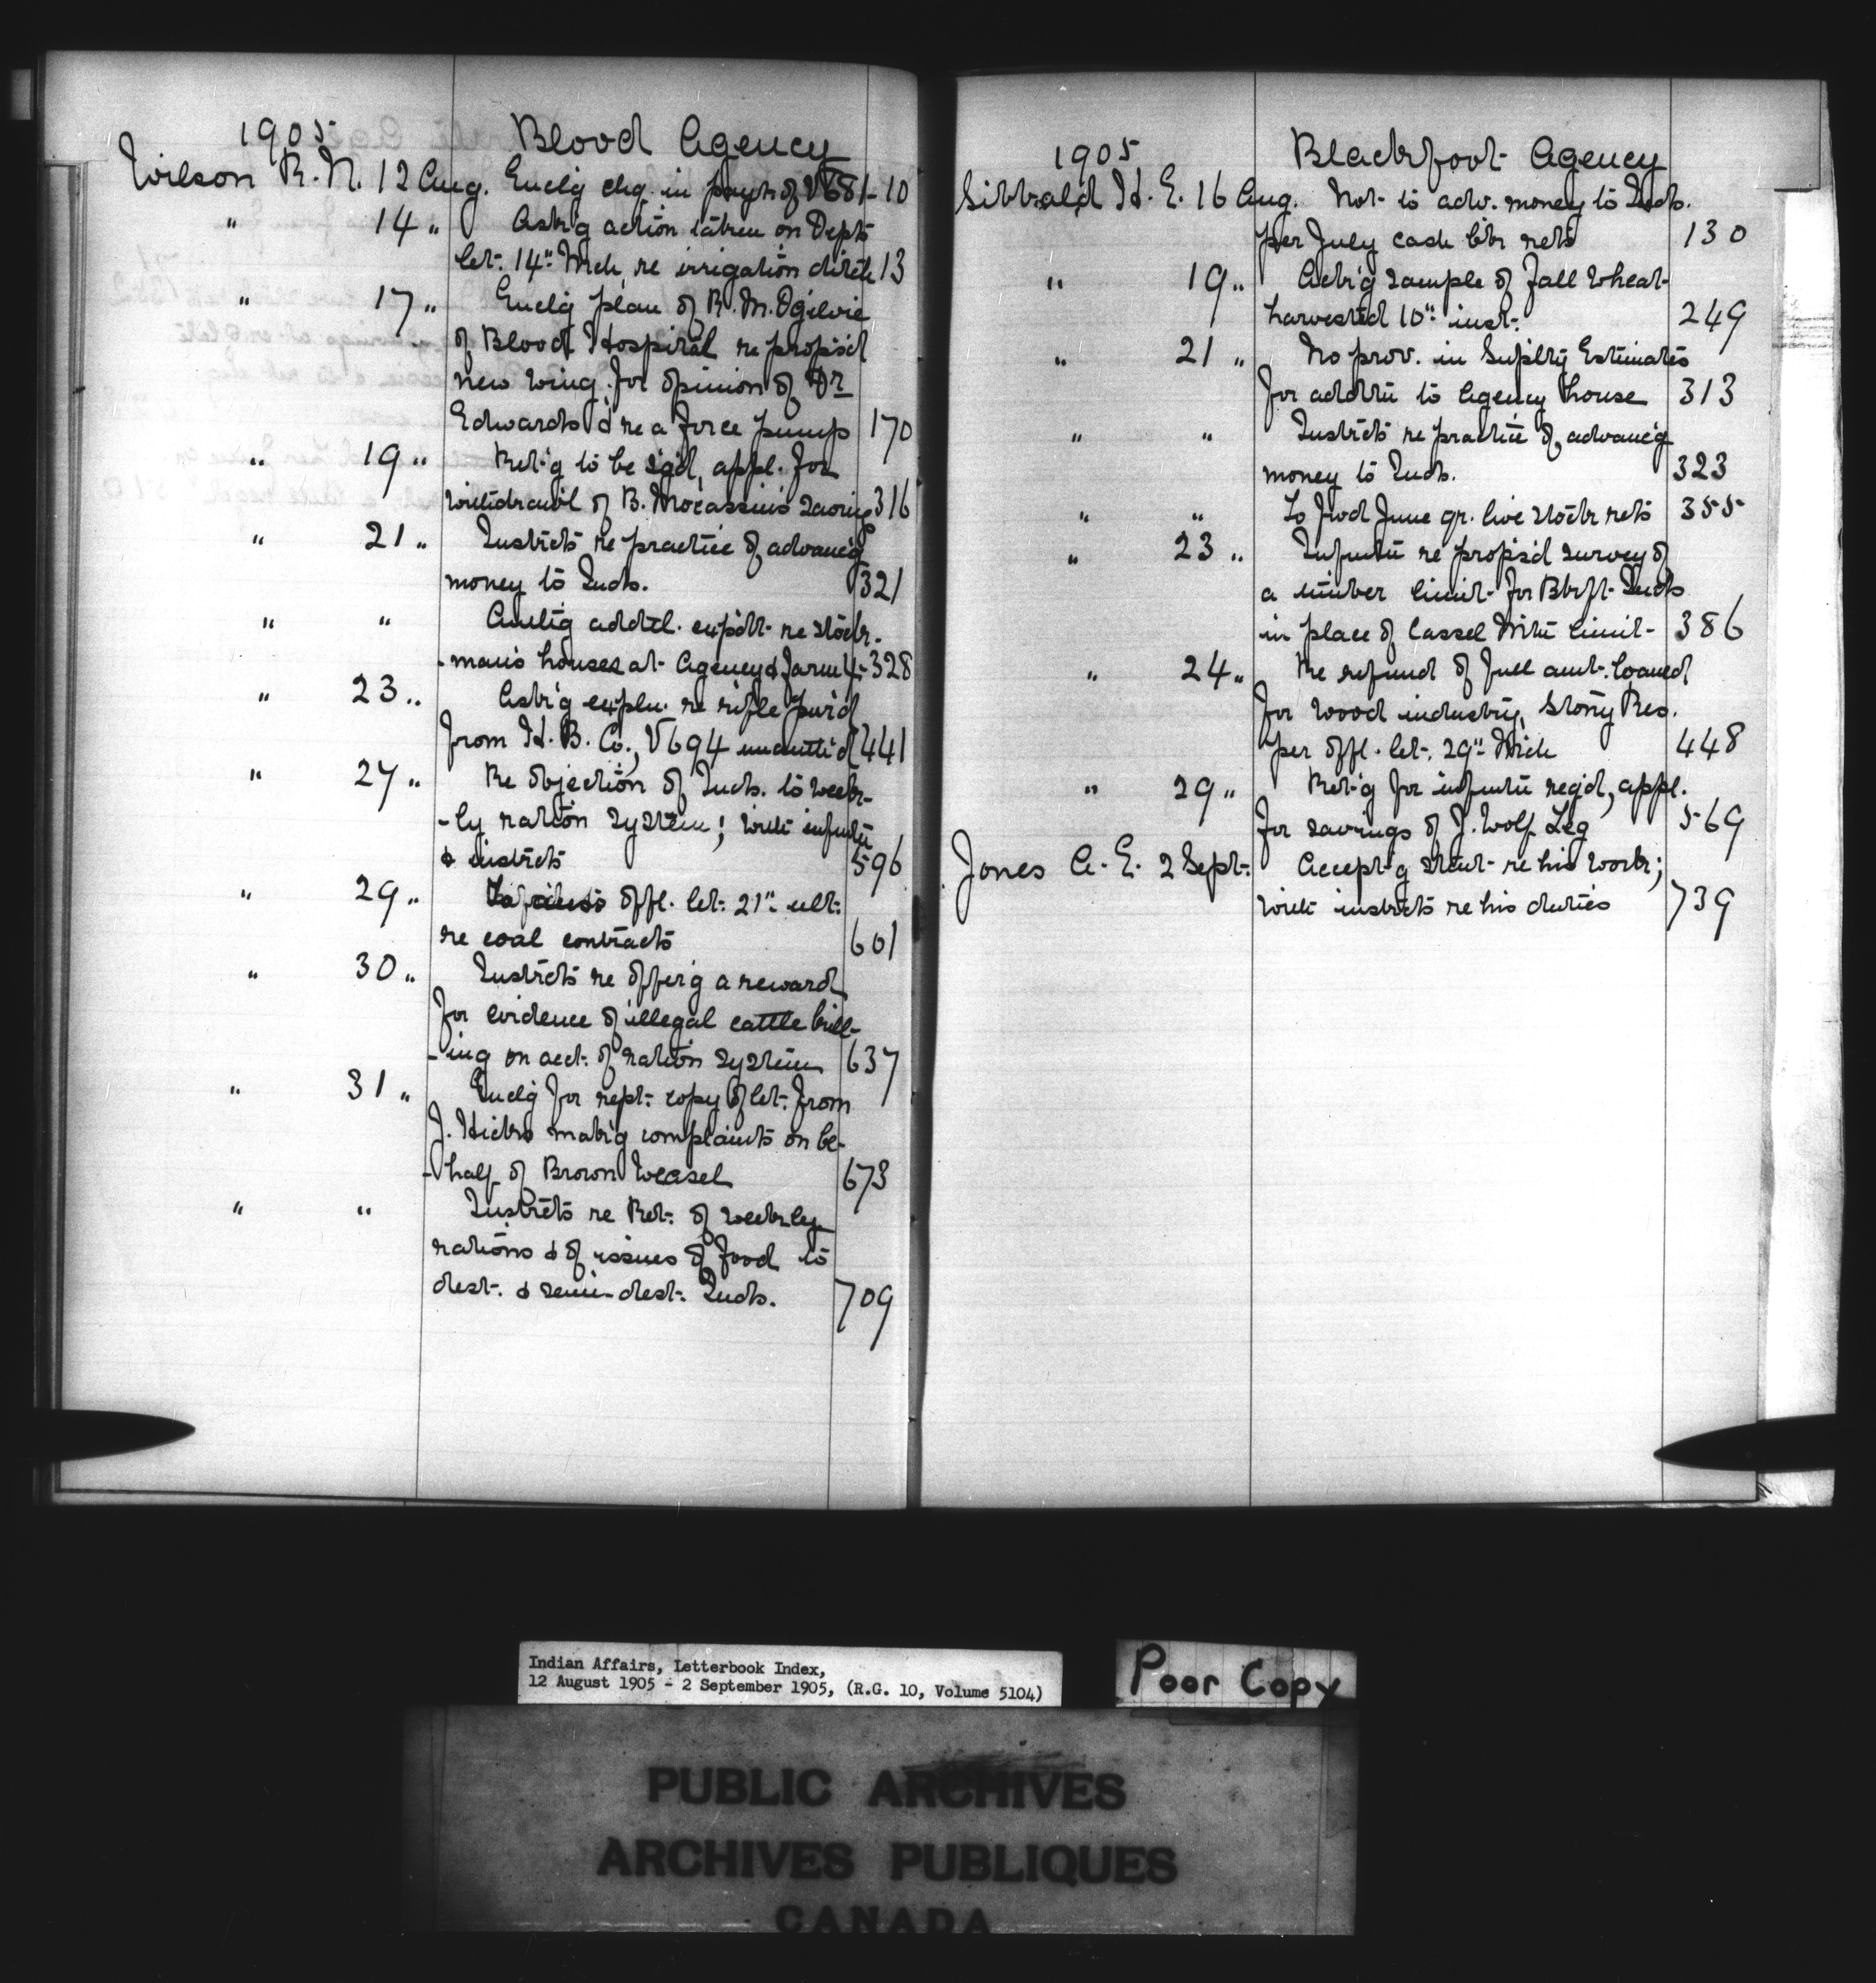 1905 Blood Agency
Wilson R. N. 12 Aug. Enclg chq. in paym't of V681 - 10
" 14 " Ask'g action taken on Dept's
let. 14" Mch re irrigation ditch 13
" 17 " Enclg plan of R. M. Ogilvie
of Blood Hospital re propos'd
new wing for opinion of Dr
Edwards & re a force pump 170
" 19 " Ret'g to be sg'd, appl. for
withdrawl of B. Mocassin's saving 316
" 21 " Instrcts re practice of advanc'g
money to Inds. 321
" " addtl. expdt. re stock-
-man's houses at Agency & Farm 4 - 328
" 23 " Ask'g expln. re rifle purd
from H. B. Co., V694 441
" 27 " Re objection of Inds. to week-
-ly ration system; with infmtn
& instrcts 596
" 29 " offl. let. 21" ult.
re coal contracts 601
" 30 " Instrcts re offer'g a reward
for evidence of illegal cattle kill-
-ing on acct. of ration system 637
" 31 " Enclg for rept. copy of let. from
J. Hicks mak'g complaints on be-
-half of Brown Weasel 673
" " Instrcts re Ret. of weekly
rations & of issues of food to
dest. & semi-dest. Inds. 709
1905 Blackfoot Agency
Sibbald H. E. 16 Aug. Not to adv. money to Inds.
per July cash bk rets 130
" 19 " Ack'g sample of fall wheat
harvested 10" inst. 249
" 21 " No prov. in Suplty Estimates
for addtn to Agency house 313
" " Instrcts re practice of advanc'g
money to Inds. 323
" " To fwd June qr. live stock rets 355
" 23 " Infmtn re propos'd survey of
a timber limit for Bkft Inds
in place of Castle Mtn limit 386
" 24 " Re refund of full amt. loaned
for wood industry, Stony Res.
per offl. let. 29" Mch 448
" 29 " Ret'g for infmtn reqd, appl.
for savings of J. Wolf Leg 569
Jones A. E. 2 Sept. Accept'g stmt re his work;
with instrcts re his duties 739
Indian Affairs, Letterbook Index,
12 August 1905 - 2 September 1905, (R.G. 10, Volume 5104)
Poor Copy
PUBLIC ARCHIVES
ARCHIVES PUBLIQUES
CANADA